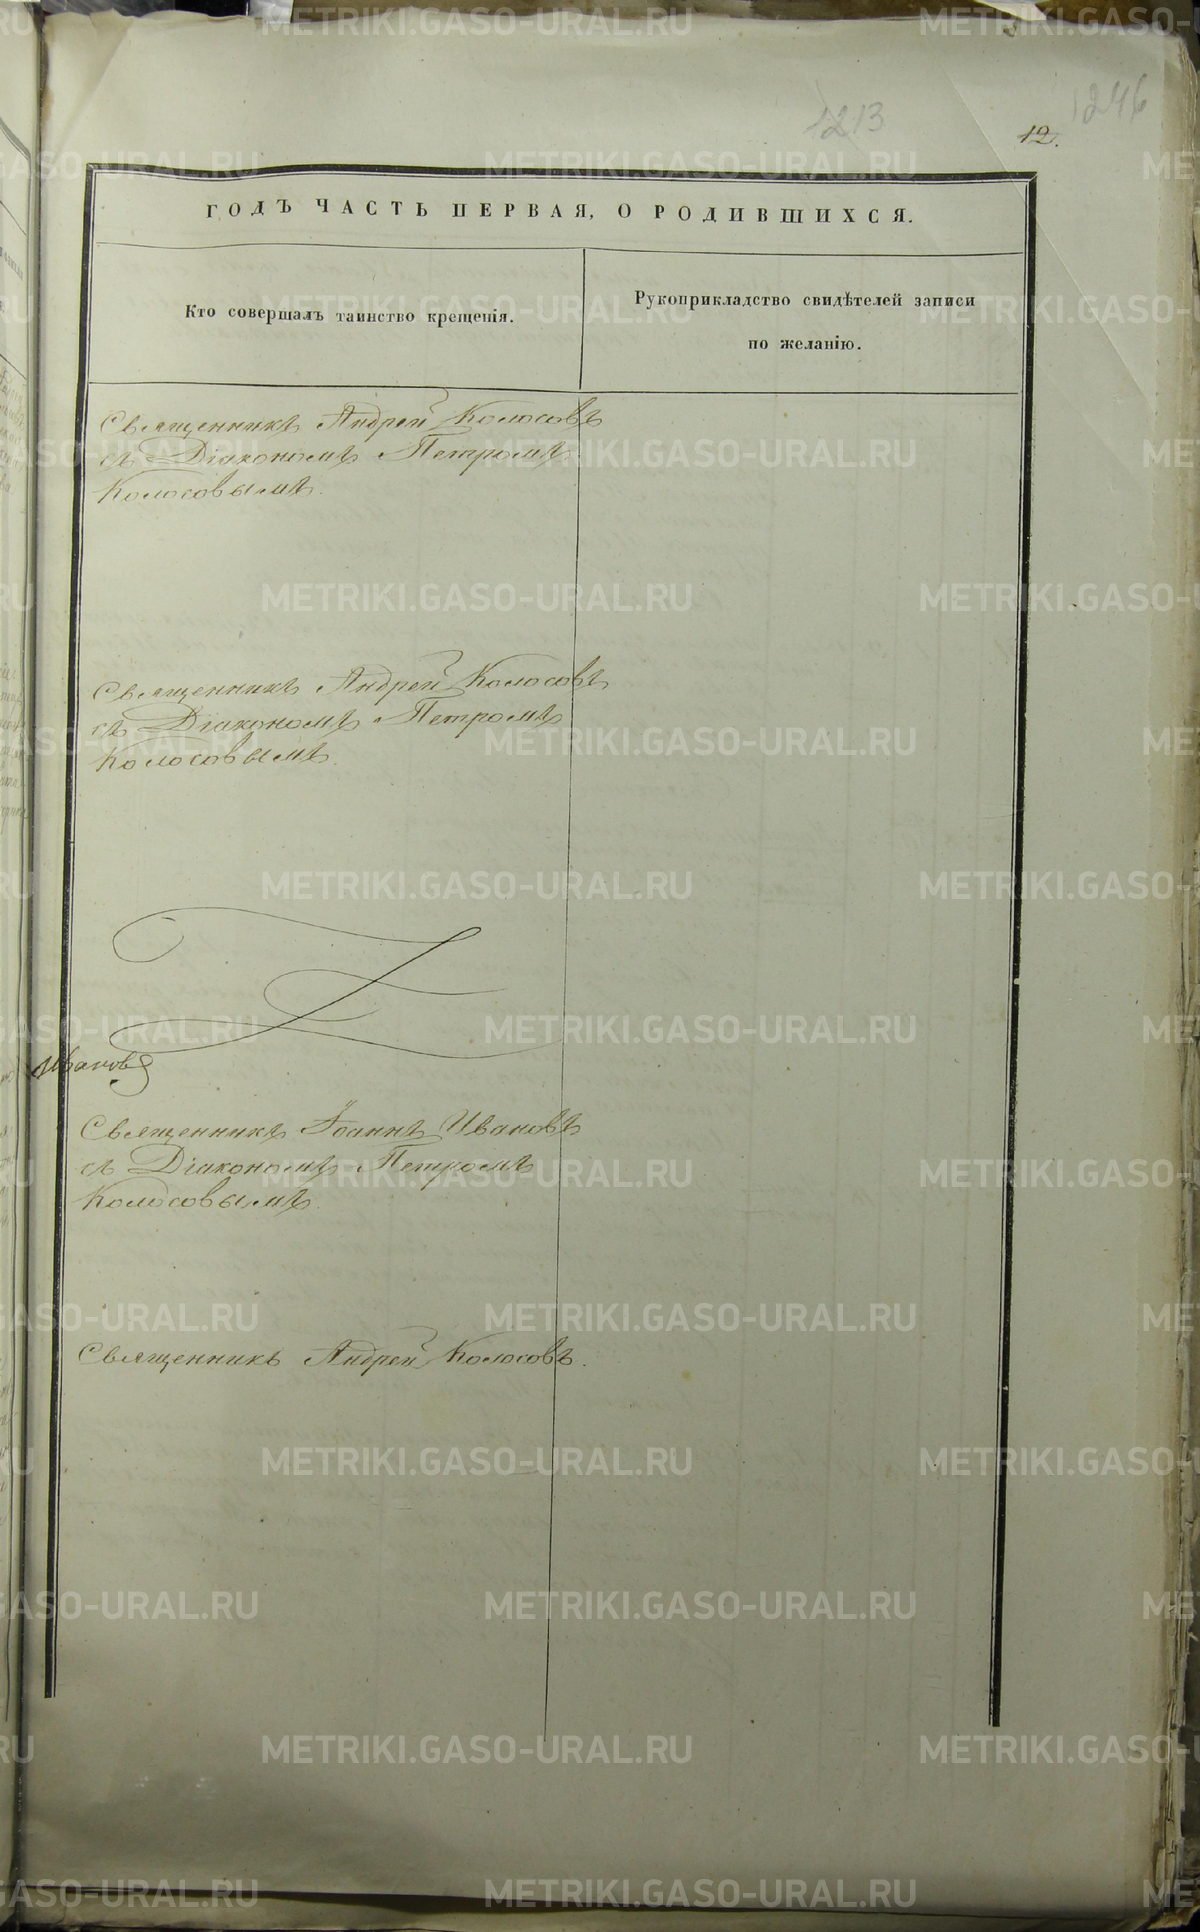 1213
1246
12.
ГОДЪ ЧАСТЬ ПЕРВАЯ, О РОДИВШИХСЯ.
Кто совершалъ таинство крещенія.
Рукоприкладство свидѣтелей записи
по желанію.
Священникъ Андрей Колосовъ
съ Діакономъ Петромъ
Колосовымъ.
Священникъ Андрей Колосовъ
съ Діакономъ Петромъ
Колосовымъ.
Ивановъ
Священникъ Іоаннъ Ивановъ
съ Діакономъ Петромъ
Колосовымъ.
Священникъ Андрей Колосовъ.
METRIKI.GASO-URAL.RU